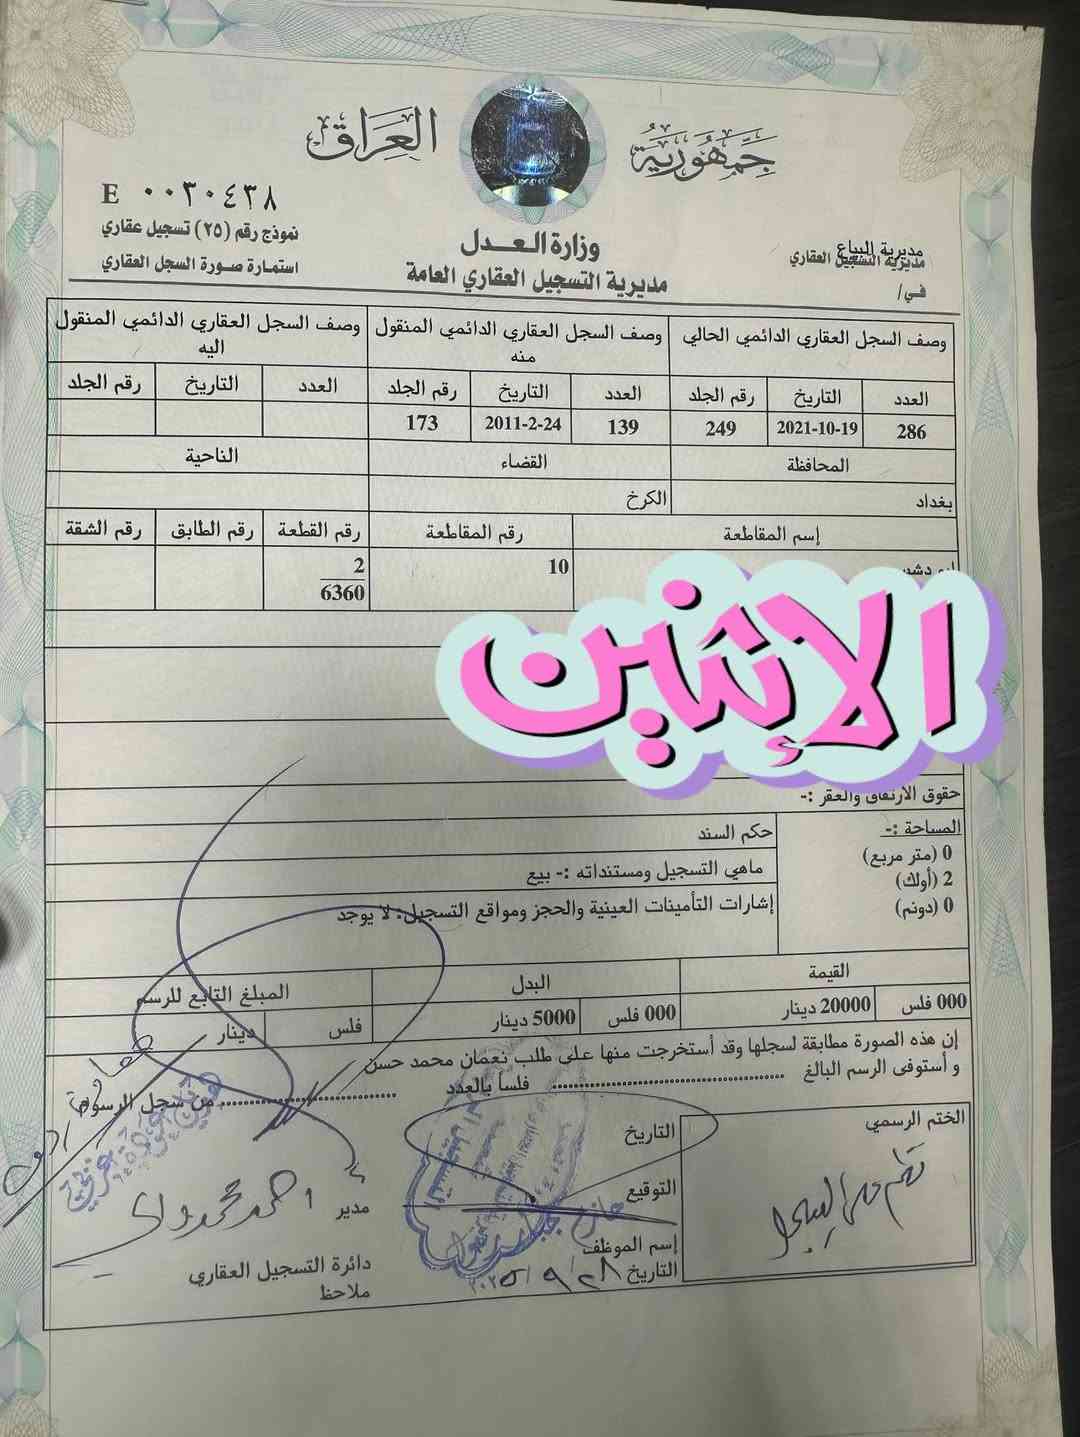 جمهورية العراق
E ٠٠٣٠٤٣٨
وزارة العدل
مديرية التسجيل العقاري العامة
نموذج رقم (٢٥) تسجيل عقاري
استمارة صورة السجل العقاري
مديرية البياع
مديرية التسجيل العقاري
في/
وصف السجل العقاري الدائمي الحالي وصف السجل العقاري الدائمي المنقول منه وصف السجل العقاري الدائمي المنقول اليه
العدد التاريخ رقم الجلد العدد التاريخ رقم الجلد العدد التاريخ رقم الجلد
286 2021-10-19 249 139 2011-2-24 173
المحافظة القضاء الناحية
بغداد الكرخ
إسم المقاطعة رقم المقاطعة رقم القطعة رقم الطابق رقم الشقة
10 2
6360
الإثنين
حقوق الارتفاق والعقر :-
المساحة :-
0 (متر مربع)
2 (أولك)
0 (دونم)
حكم السند
ماهي التسجيل ومستنداته :- بيع
إشارات التأمينات العينية والحجز ومواقع التسجيل: لا يوجد
القيمة البدل المبلغ التابع للرسم
000 فلس 20000 دينار 000 فلس 5000 دينار فلس دينار
إن هذه الصورة مطابقة لسجلها وقد أستخرجت منها على طلب نعمان محمد حسن
و أستوفى الرسم البالغ فلساً بالعدد من سجل الرسوم
الختم الرسمي
التاريخ
التوقيع
إسم الموظف
التاريخ ٢٨ / ٩ / ٢٠٢٥
مدير
أحمد محمد
دائرة التسجيل العقاري
ملاحظ